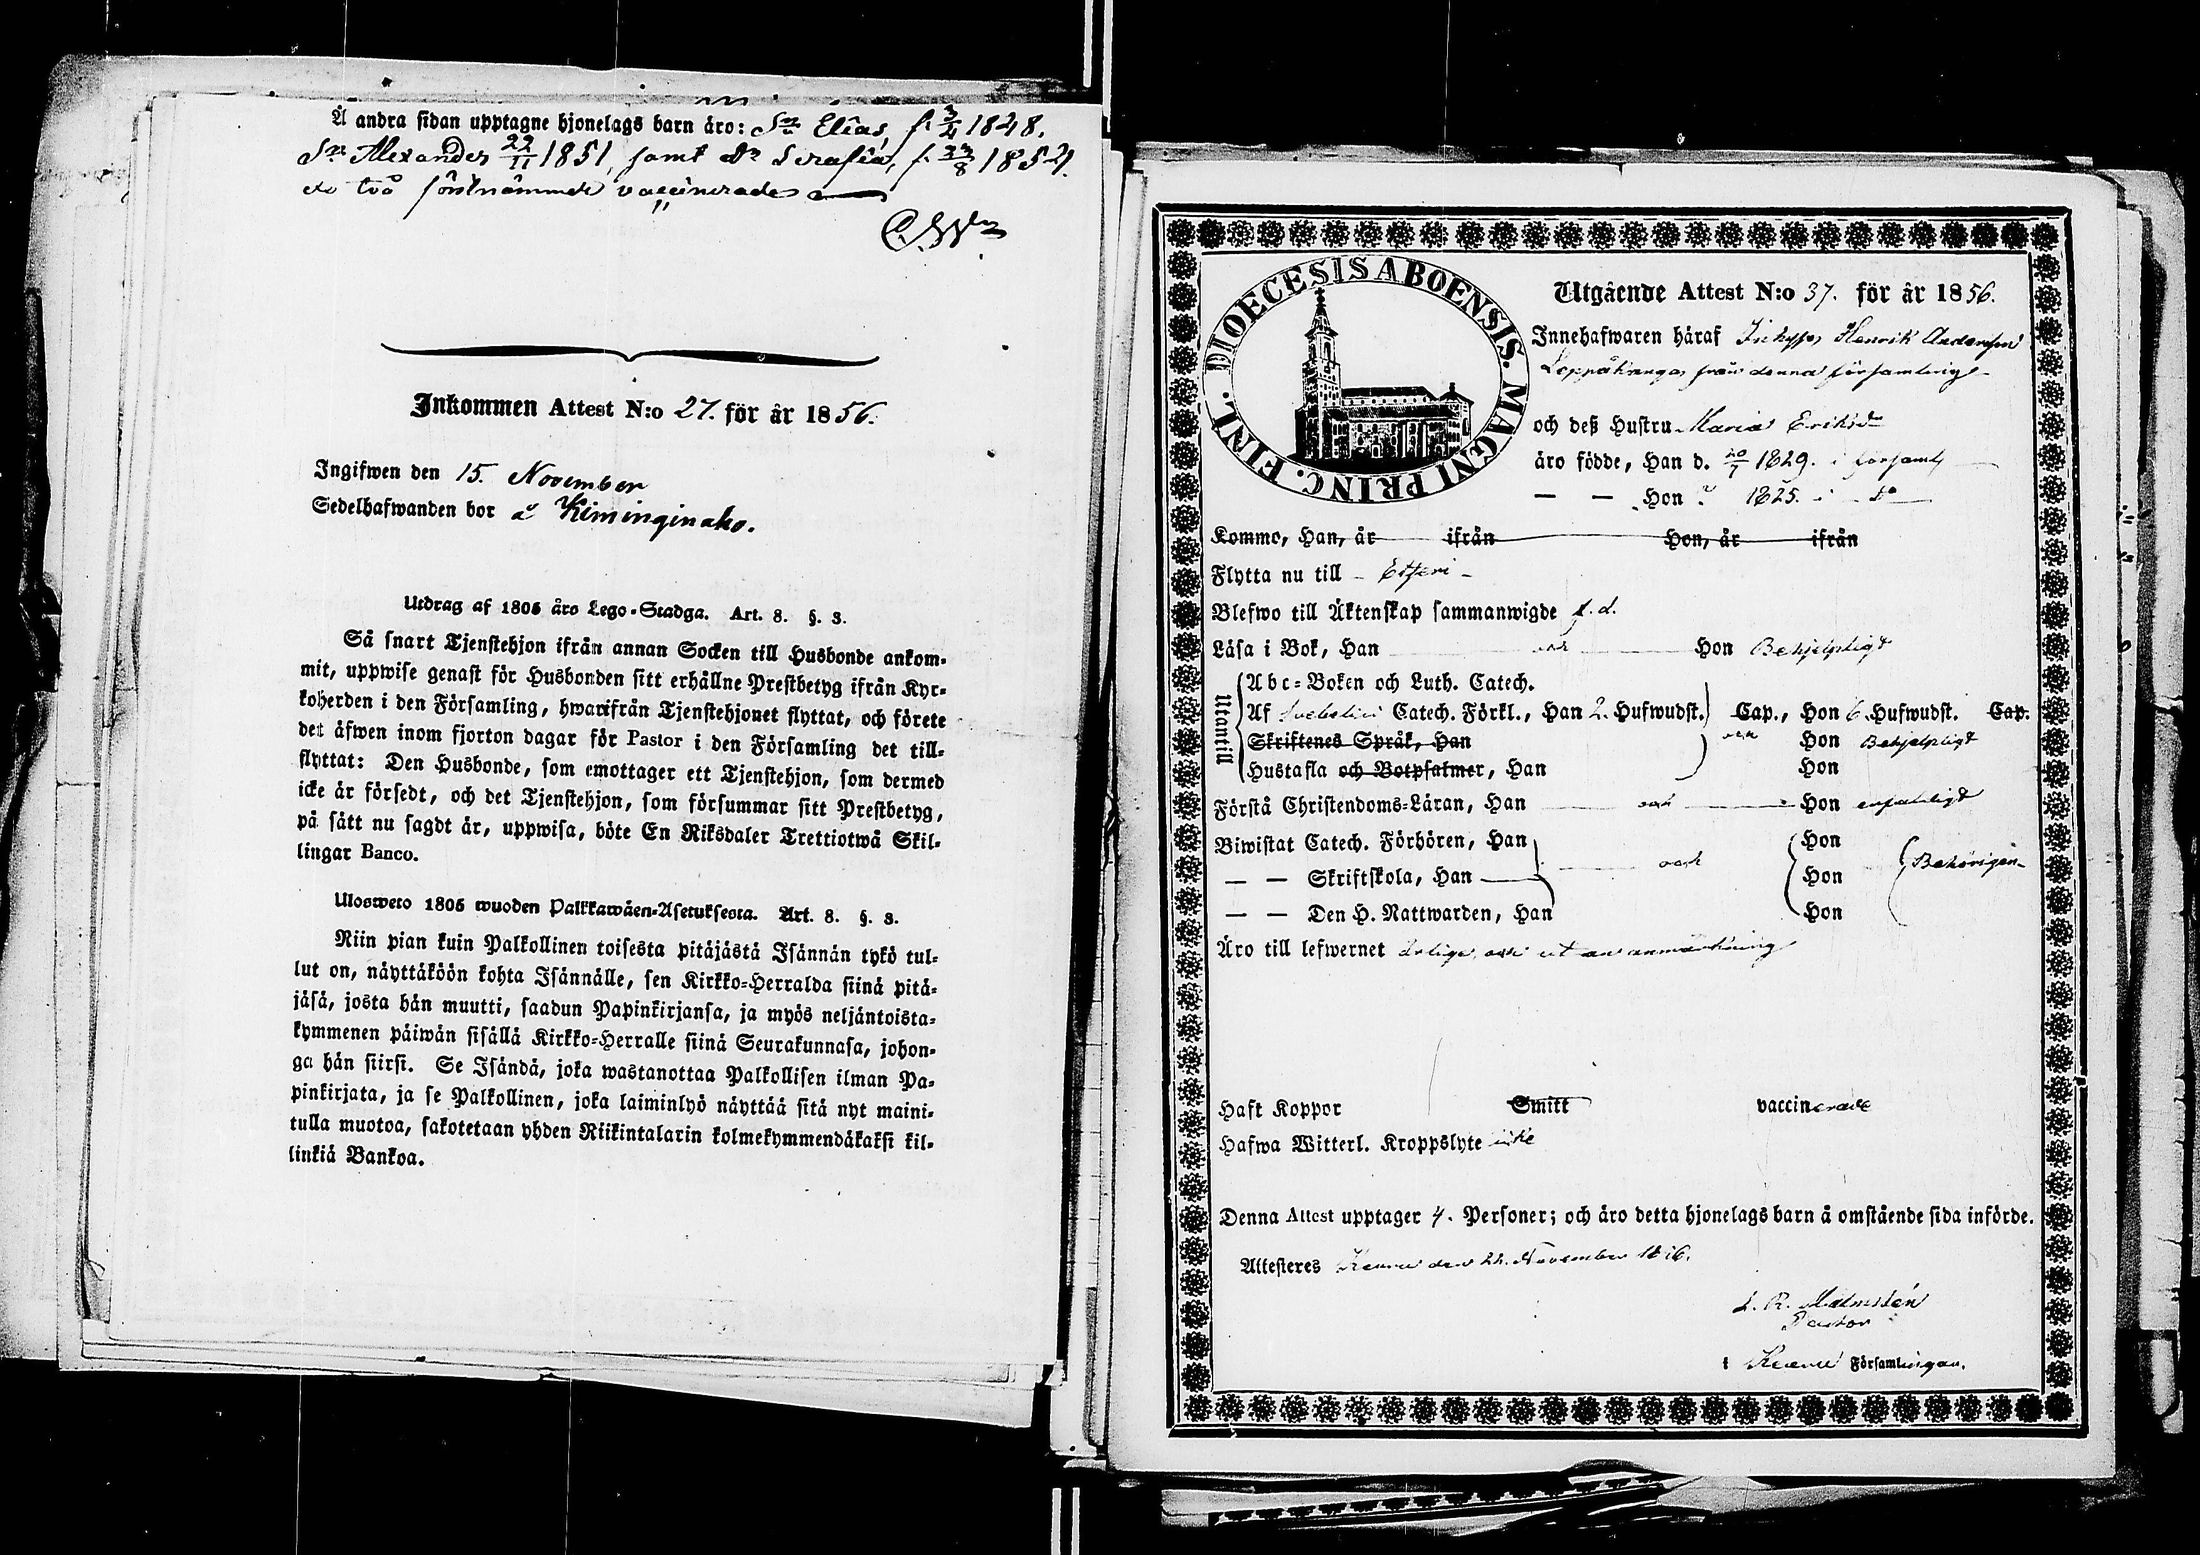 Å andra sidan upptagne hjonelags barn äro: Sn Elias, f. 3/4 1848.
Sn Alexander 22/11 1851, samt Dr Serafia, f. 23/8 1854.
de två förstnämnde vaccinerade
C.W
Inkommen Attest N:o 27. för år 1856.
Ingifwen den 15. November
Sedelhafwanden bor å Kiminginaho.
Utdrag af 1805 års Lego-Stadga. Art. 8. §. 3.
Så snart Tjenstehjon ifrån annan Socken till Husbonde ankom-
mit, uppwise genast för Husbonden sitt erhållne Prestbetyg ifrån Kyr-
koherden i den Församling, hwarifrån Tjenstehjonet flyttat, och förete
det äfwen inom fjorton dagar för Pastor i den Församling det till-
flyttat: Den Husbonde, som emottager ett Tjenstehjon, som dermed
icke är försedt, och det Tjenstehjon, som försummar sitt Prestbetyg,
på sätt nu sagdt är, uppwisa, böte En Riksdaler Trettiotwå Skil-
lingar Banco.
Ulosweto 1805 wuoden Palkkawäen-Asetuksesta. Art. 8. §. 3.
Niin pian kuin Palkollinen toisesta pitäjästä Isännän tykö tul-
lut on, näyttäköön kohta Isännälle, sen Kirkko-Herralda siinä pitä-
jäsä, josta hän muutti, saadun Papinkirjansa, ja myös neljäntoista-
kymmenen päiwän sisällä Kirkko-Herralle siinä Seurakunnasa, johon-
ga hän siirsi. Se Isändä, joka wastanottaa Palkollisen ilman Pa-
pinkirjata, ja se Palkollinen, joka laiminlyö näyttää sitä nyt maini-
tulla muotoa, sakotetaan yhden Riikintalarin kolmekymmendäkaksi kil-
linkiä Bankoa.
DIOECESIS ABOENSIS. MAGNI PRINC. FINL.
Utgående Attest N:o 37. för år 1856.
Innehafwaren häraf Inhyses Henrik Andersson
från denna församling
och deß Hustru Maria Eriksd
äro födde, Han d. 20/7 1829. i församl
— — Hon å 1825. i do
Kommo, Han, år ifrån Hon, år ifrån
Flytta nu till Etseri
Blefwo till Äktenskap sammanwigde f. d.
Läsa i Bok, Han och Hon Behjelpligt
Utantill
Abc-Boken och Luth. Catech.
Af Svebelii Catech. Förkl., Han 2. Hufwudst. Cap., Hon 6. Hufwudst. Cap.
Skriftenes Språk, Han och Hon Behjelpligt
Hustafla och Botpsalmer, Han Hon
Förstå Christendoms-Läran, Han och Hon enfaldigt
Biwistat Catech. Förhören, Han Hon
— — Skriftskola, Han och Hon Behörigen
— — Den H. Nattwarden, Han Hon
Äro till lefwernet ärlige och utan anmärkning
Haft Koppor Smitt vaccinerade
Hafwa Witterl. Kroppslyte icke
Denna Attest upptager 4. Personer; och äro detta hjonelags barn å omstående sida införde.
Attesteres Keuru den 22. November 1856.
L. R. Malmstén
Pastor
i Keuru Församlingar.